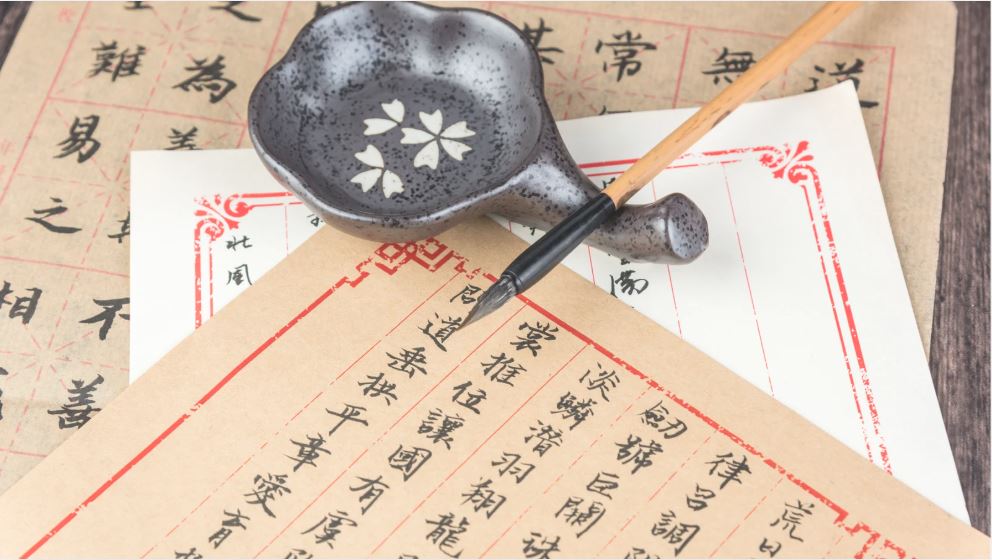 道
無
常
其
之為善
不善
難易之相
北風
荒日
律呂調
劍號巨闕珠
淡鱗潛羽翔龍
裳推位讓國有虞
道垂拱平章愛育